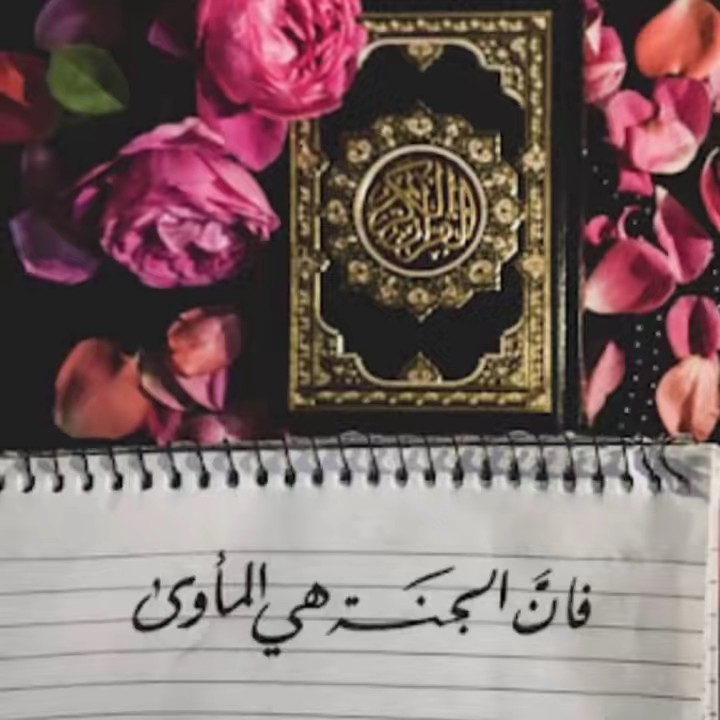 القرآن الكريم
فانَّ الجنة هي المأوىٰ